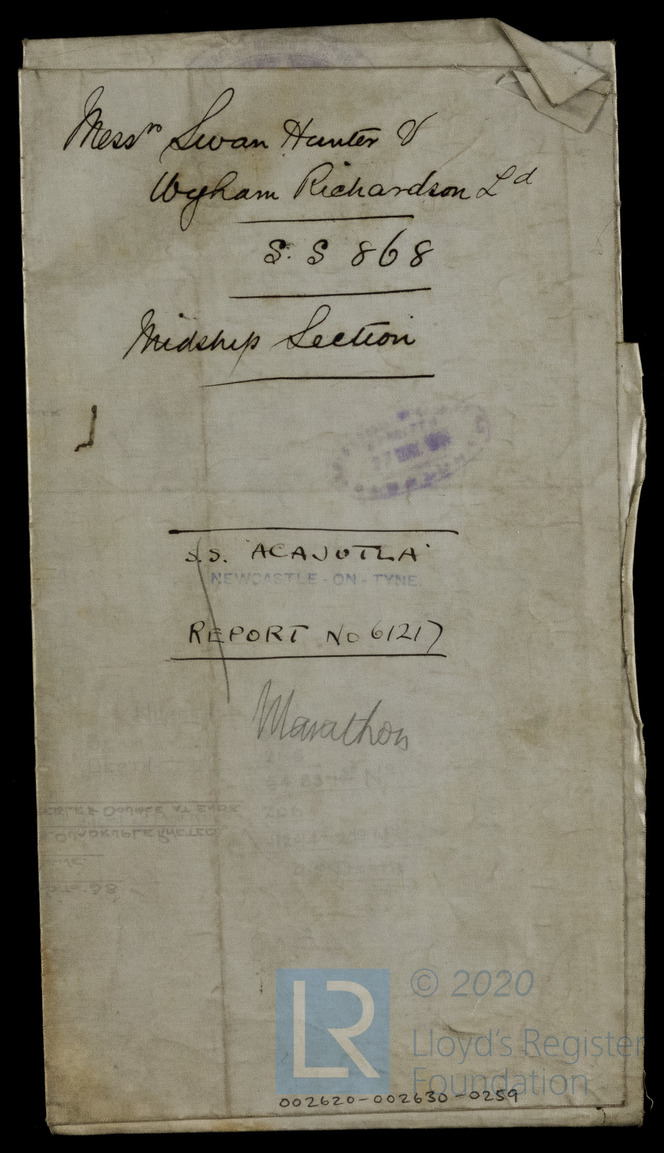 Messrs Swan Hunter &
Wigham Richardson Ld
S.S 868
Midship Section
S.S. 'ACAJUTLA'
NEWCASTLE-ON-TYNE.
REPORT No 61217
Marathon
LR
© 2020
Lloyd's Register
Foundation
002620-002630-0259